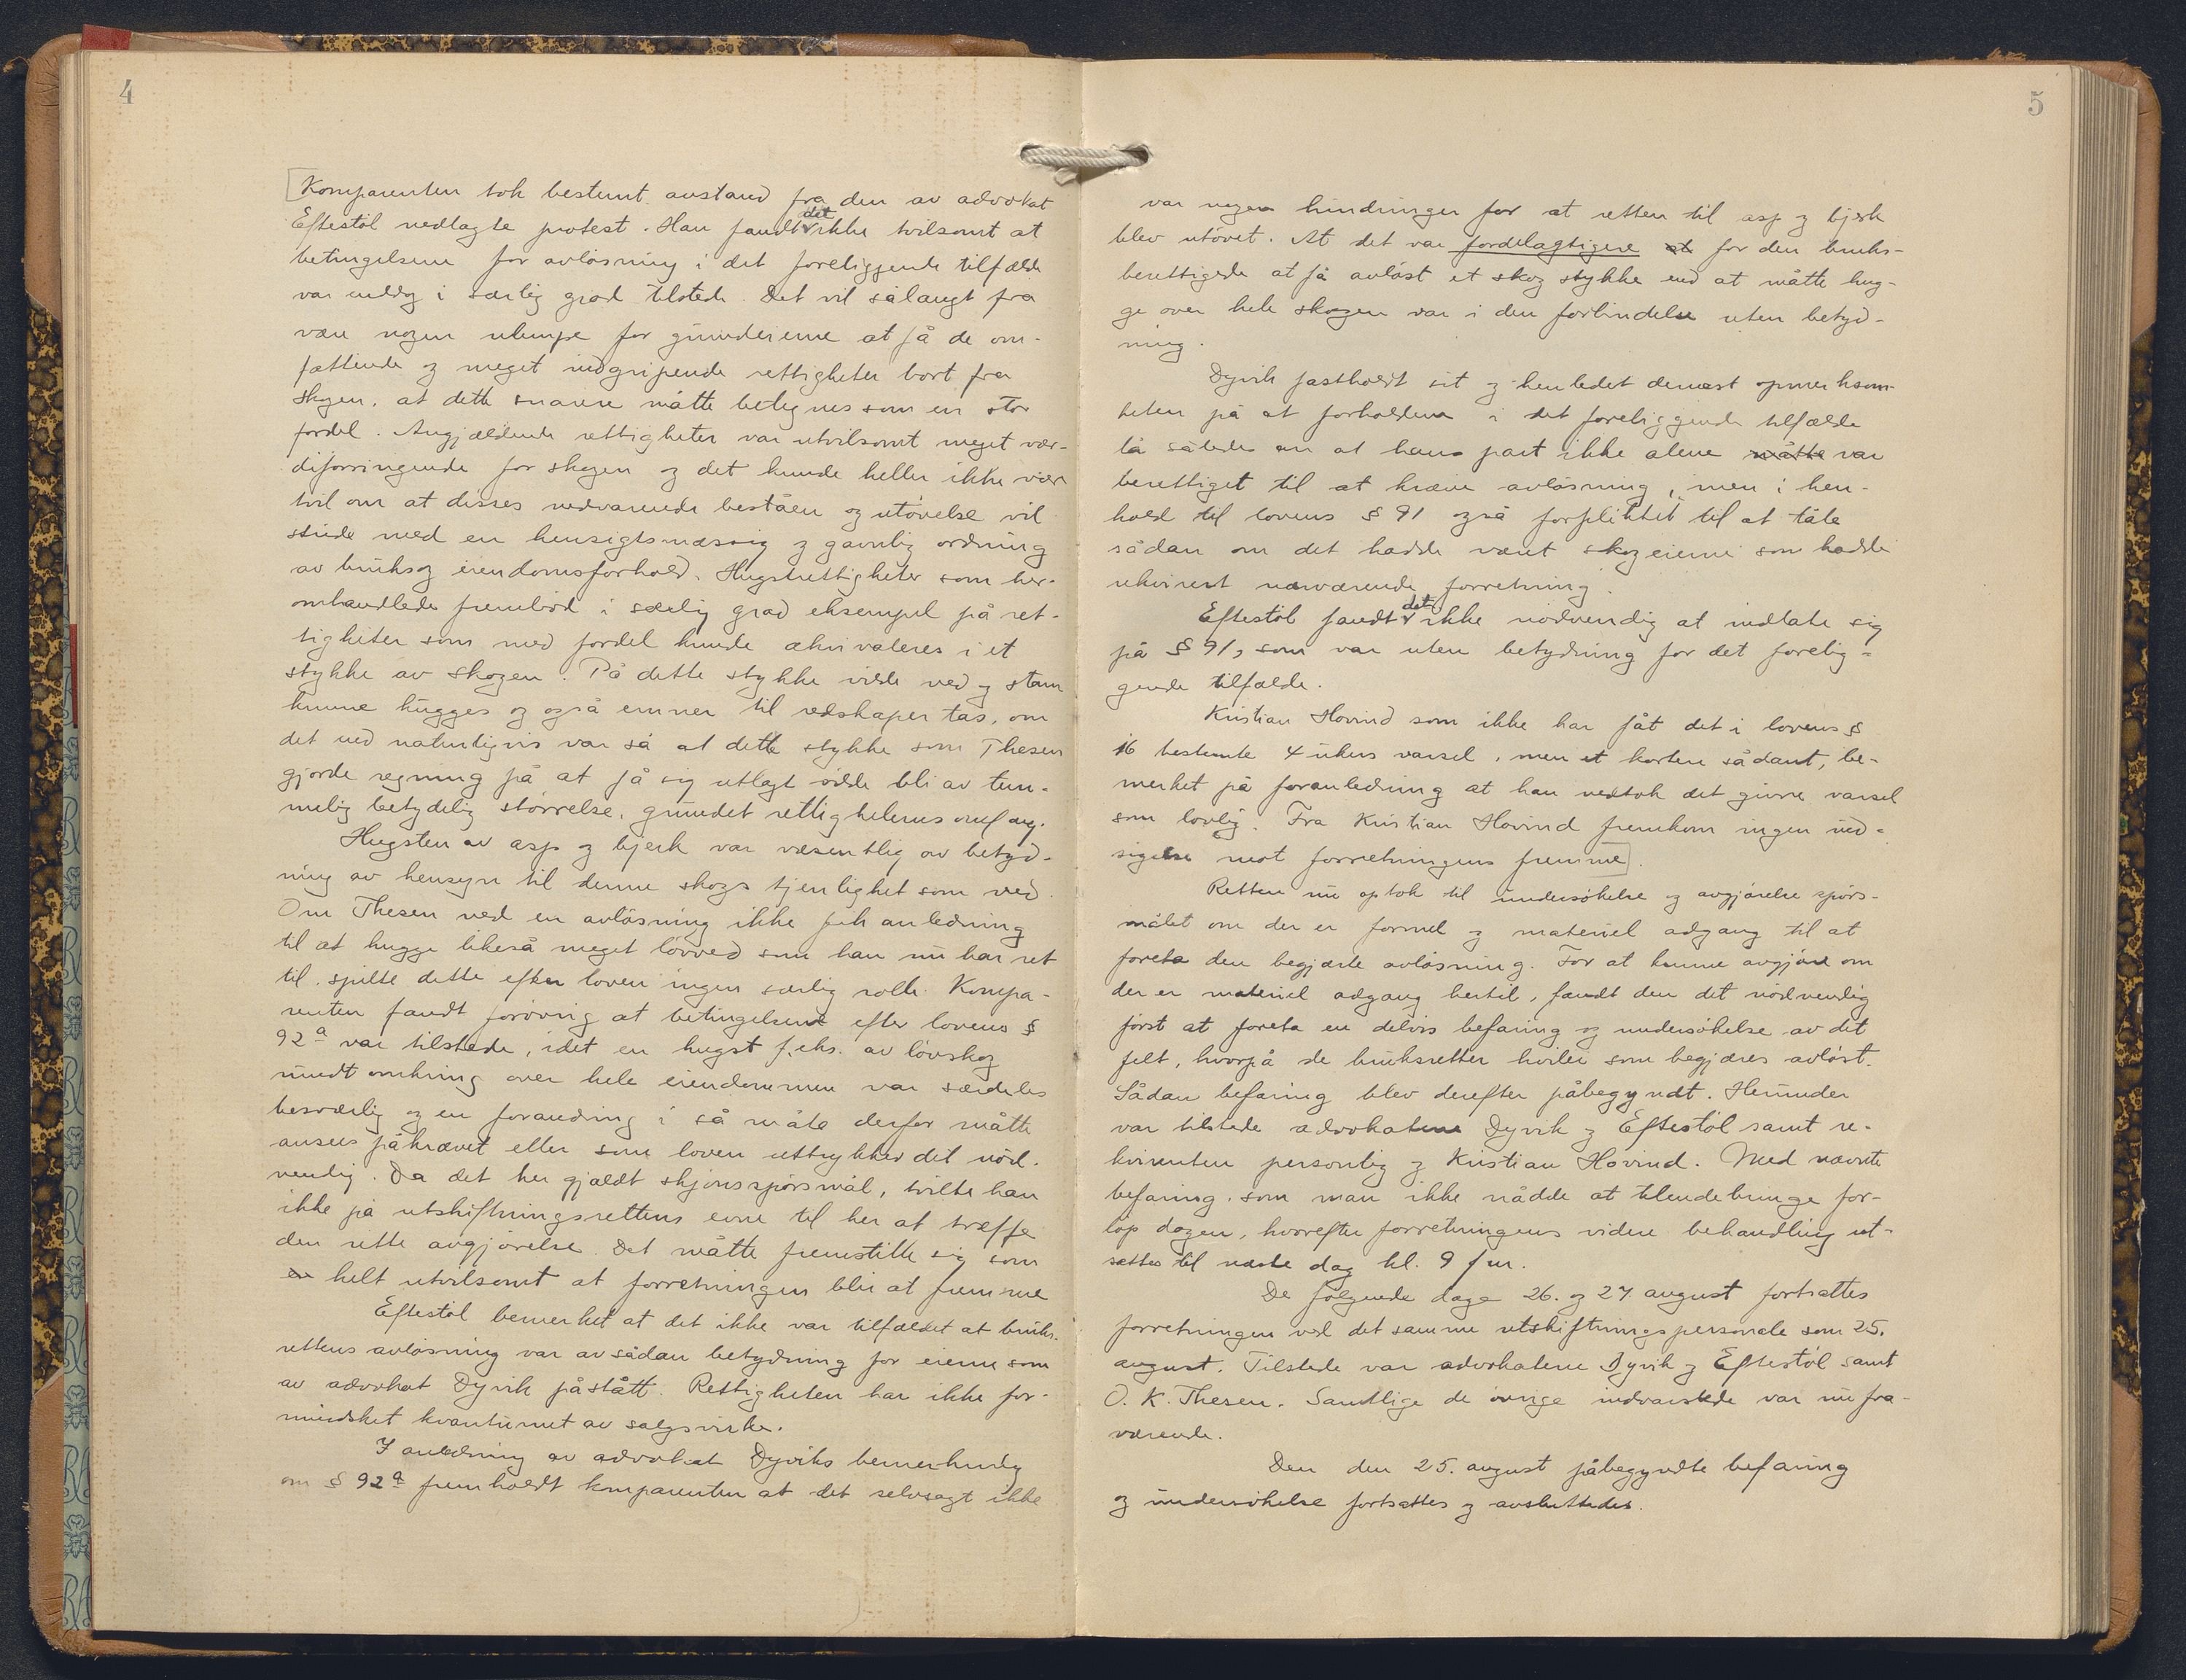 4
Komparenten tok bestemt avstand fra den av advokat
Eftestøl nedlagte protest. Han fandt det ikke tvilsomt at
betingelsene for avløsning i det foreliggende tilfælde
var endog i særlig grad tilstede. Det vil sålangt fra
være nogen ulempe for grundeierne at få de om-
fattende og meget indgripende rettigheter bort fra
skogen, at dette snarere måtte betegnes som en stor
fordel. Angjældende rettigheter var utvilsomt meget vær-
diforringende for skogen og det kunde heller ikke være
tvil om at disses vedvarende beståen og utøvelse vil
stride med en hensigtsmæssig og gavnlig ordning
av bruks og eiendomsforhold. Hugstrettigheter som her-
omhandlede frembød i særlig grad eksempel på ret-
tigheter som med fordel kunde ækvivaleres i et
stykke av skogen. På dette stykke vilde ved og stavr
kunne hugges og også emner til redskaper tas, om
det end naturligvis var så at dette stykke som Thesen
gjorde regning på at få sig utlagt vilde bli av tem-
melig betydelig størrelse, grundet rettighetenes omfang.
Hugsten av asp og bjerk var væsentlig av betyd-
ning av hensyn til denne skogs tjenlighet som ved.
Om Thesen ved en avløsning ikke fik anledning
til at hugge likeså meget løvved som han nu har ret
til, spilte dette efter loven ingen særlig rolle. Kompa-
renten fandt forøvrig at betingelsene efter lovens §
92 a var tilstede, idet en hugst f. eks. av løvskog
rundt omkring over hele eiendommen var særdeles
besværlig og en forandring i så måte derfor måtte
ansees påkrævet eller som loven uttrykker det nød-
vendig. Da det her gjældt skjønsspørsmål, tvilte han
ikke på utskiftningsrettens evne til her at træffe
den rette avgjørelse. Det måtte fremstille sig som
en helt utvilsomt at forretningen blir at fremme
Eftestøl bemerket at det ikke var tilfældet at bruks-
rettens avløsning var av sådan betydning for eierne som
av advokat Dyvik påstått. Rettigheten har ikke for-
mindsket kvantumet av salgsvirke.
I anledning av advokat Dyviks bemerkning
om § 92 a fremholdt komparenten at det selvsagt ikke
5
var nogen hindringer for at retten til asp og bjerk
blev utøvet. At det var fordelagtigere at for den bruks-
berettigede at få avløst et skog stykke end at måtte hug-
ge over hele skogen var i den forbindelse uten betyd-
ning.
Dyvik fastholdt sit og henledet dernæst opmerksom-
heten på at forholdene i det foreliggende tilfælde
lå således an at hans part ikke alene måtte var
berettiget til at kræve avløsning, men i hen-
hold til lovens § 91 også forpliktet til at tåle
sådan om det hadde været skogeierne som hadde
rekvirert nærværende forretning.
Eftestøl fandt det ikke nødvendig at indlate sig
på § 91, som var uten betydning for det forelig-
gende tilfælde.
Kristian Hovind som ikke har fåt det i lovens §
16 bestemte 4 ukers varsel, men et kortere sådant, be-
merket på foranledning at han vedtok det givne varsel
som lovlig. Fra Kristian Hovind fremkom ingen ind-
sigelse mot forretningens fremme.
Retten nu optok til undersøkelse og avgjørelse spørs-
målet om der er formel og materiel adgang til at
foreta den begjærte avløsning. For at kunne avgjøre om
der er materiel adgang hertil, fandt den det nødvendig
først at foreta en delvis befaring og undersøkelse av det
felt, hvorpå de bruksretter hviler som begjæres avløst.
Sådan befaring blev derefter påbegyndt. Herunder
var tilstede advokatene Dyvik og Eftestøl samt re-
kvirenten personlig og Kristian Hovind. Med nævnte
befaring, som man ikke nådde at tilendebringe for-
løp dagen, hvorefter forretningens videre behandling ut-
sattes til næste dag kl. 9 fm.
De følgende dage 26. og 27. august fortsattes
forretningen ved det samme utskiftningspersonale som 25.
august. Tilstede var advokatene Dyvik og Eftestøl samt
O. K. Thesen. Samtlige de øvrige indvarslede var nu fra-
værende.
Den den 25. august påbegyndte befaring
og undersøkelse fortsattes og avsluttedes.